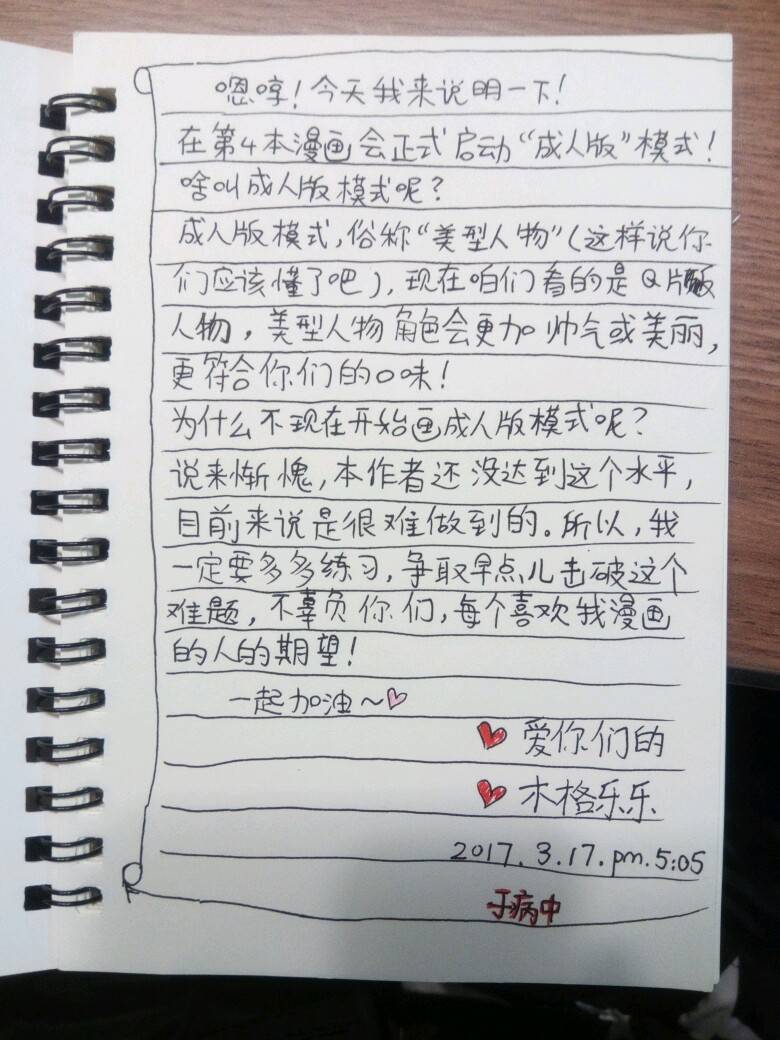 嗯哼！今天我来说明一下！
在第4本漫画会正式启动“成人版”模式！
啥叫成人版模式呢？
成人版模式，俗称“美型人物”（这样说你
们应该懂了吧），现在咱们看的是Q版
人物，美型人物角色会更加帅气或美丽，
更符合你们的口味！
为什么不现在开始画成人版模式呢？
说来惭愧，本作者还没达到这个水平，
目前来说是很难做到的。所以，我
一定要多多练习，争取早点儿击破这个
难题，不辜负你们，每个喜欢我漫画
的人的期望！
一起加油～♡
❤爱你们的
❤木格乐乐
2017.3.17.pm.5:05
于病中